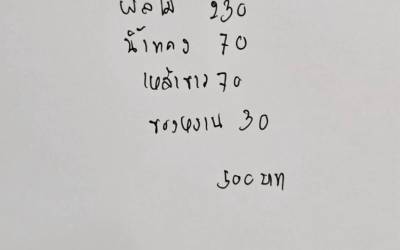 ผลไม้ 230
น้ำแดง 70
เหล้าขาว 70
ของหวาน 30
500 บาท